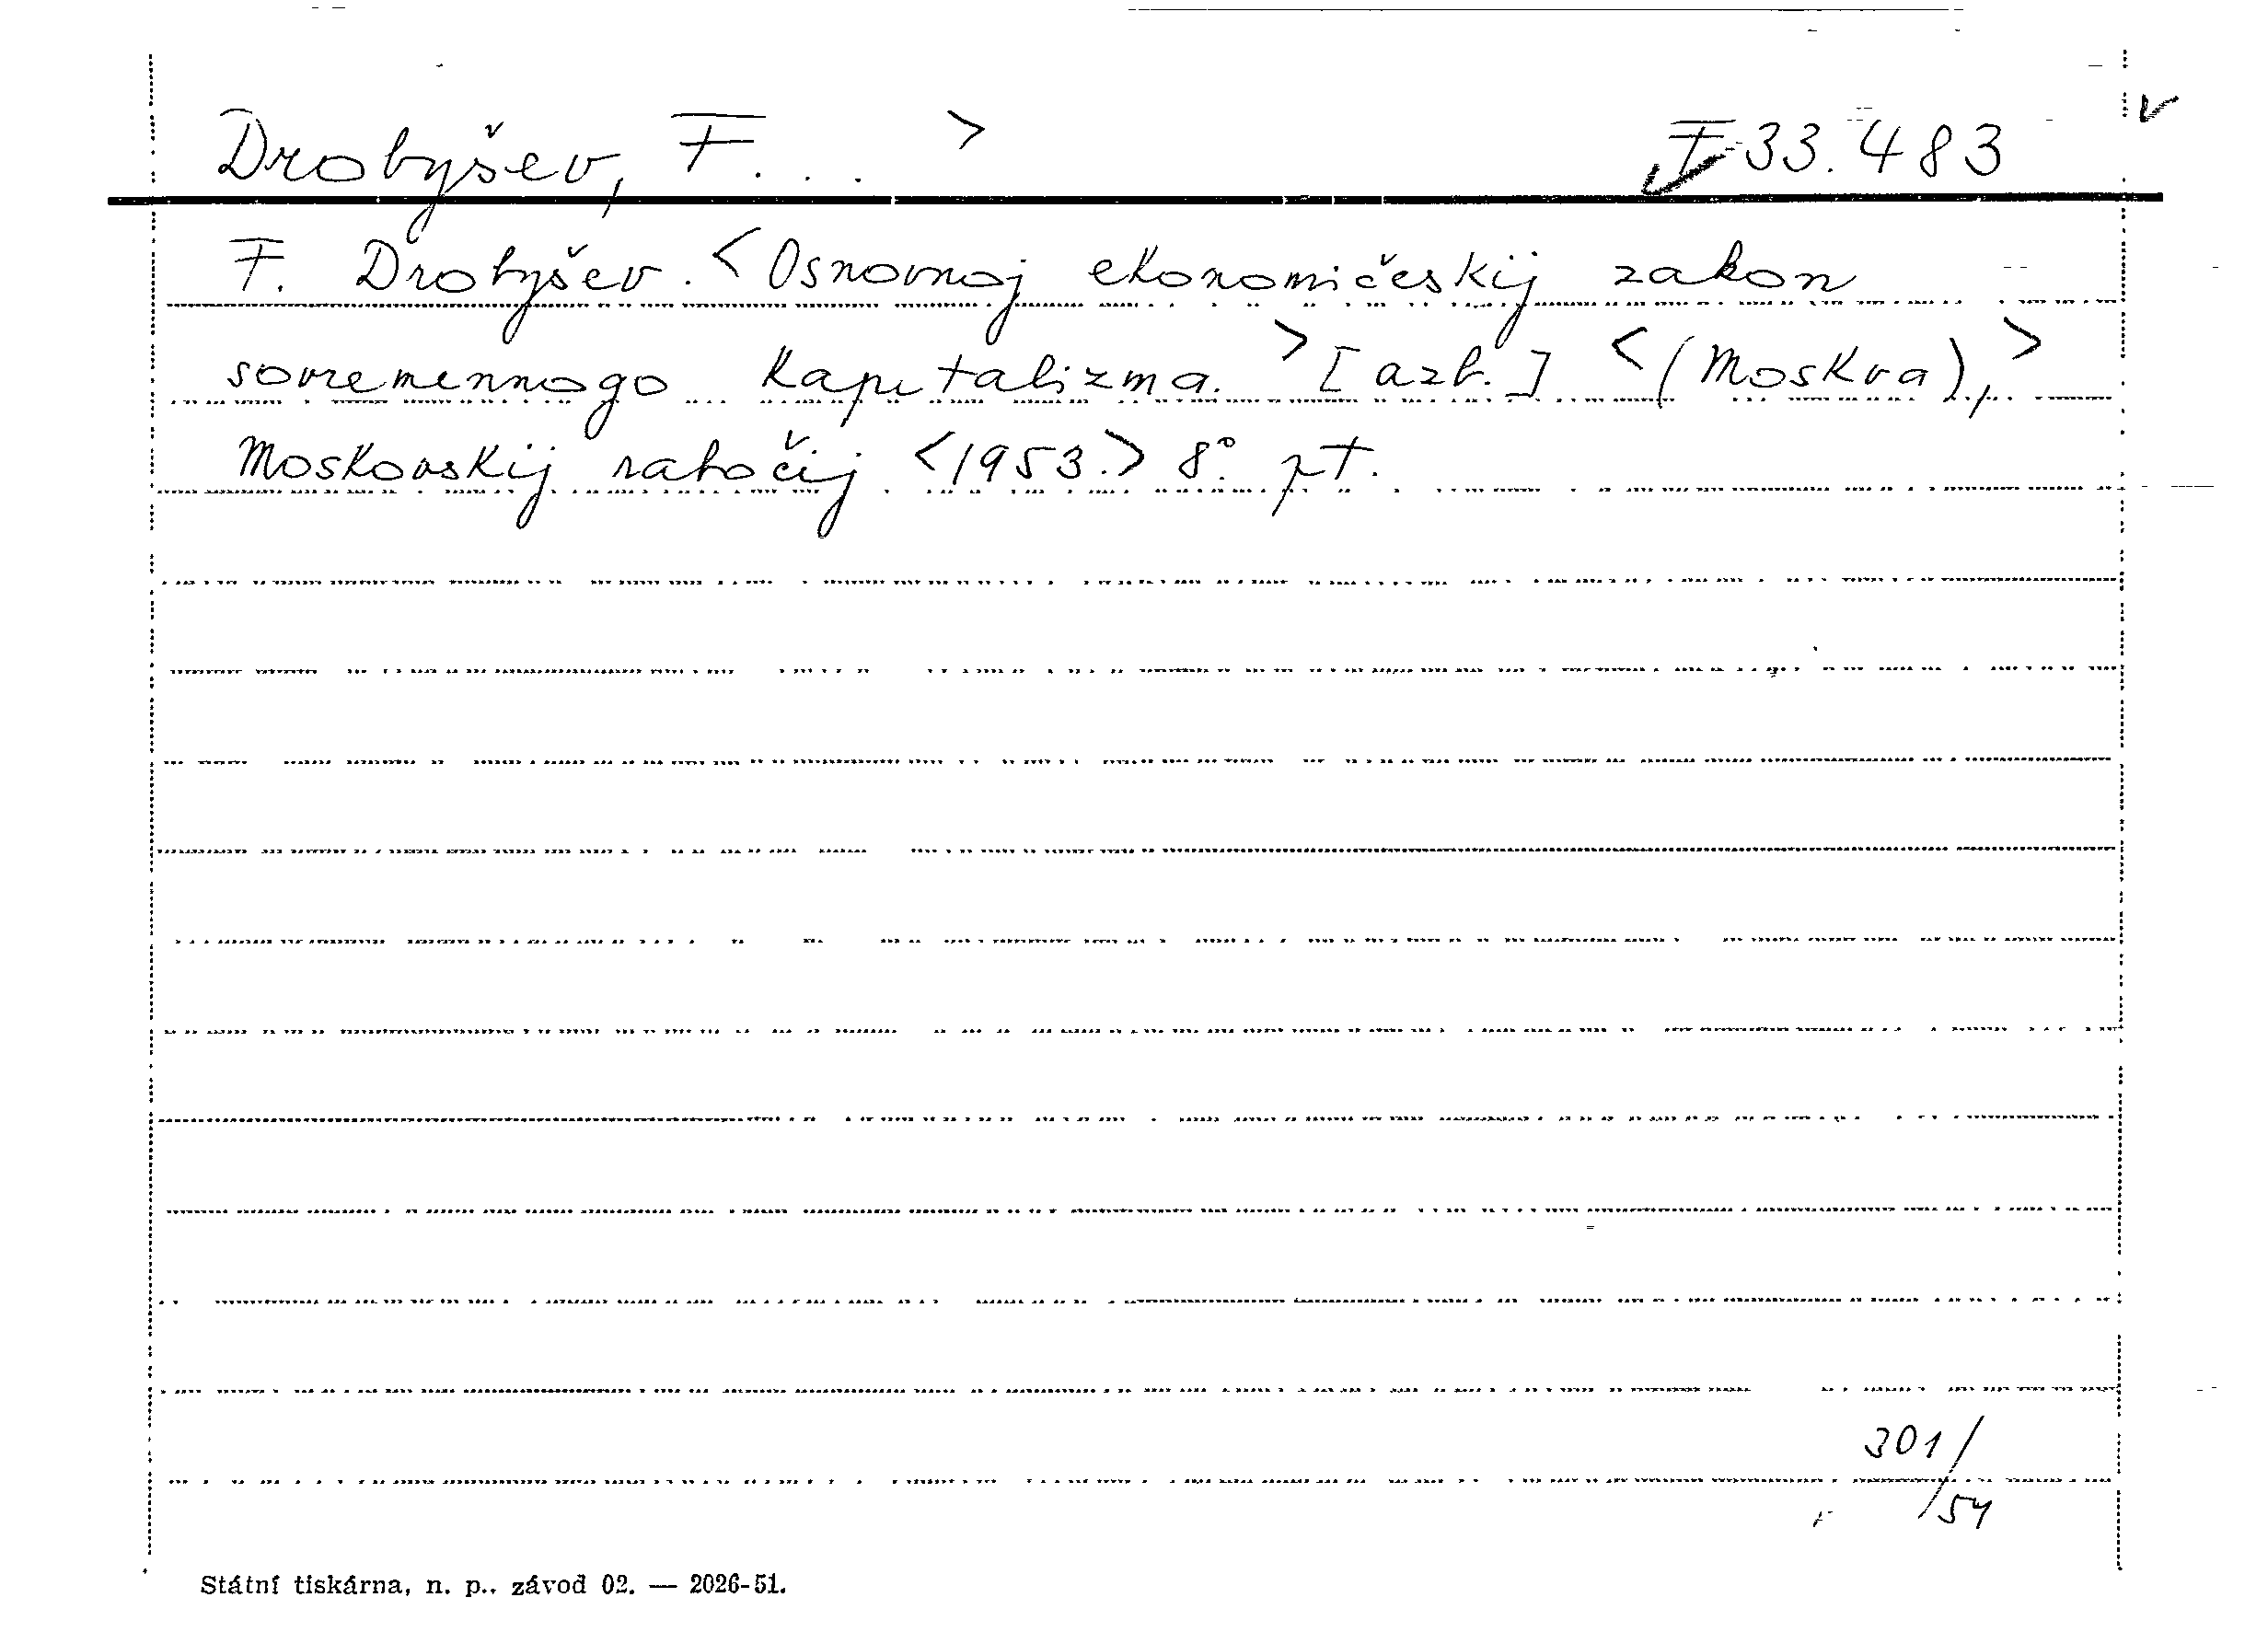 Drobyšev, F. . . > F 33.483
F. Drobyšev. <Osnovnoj ekonomičeskij zakon
sovremennogo kapitalizma.> [azb.] <(Moskva),>
Moskovskij rabočij <1953.> 8°. pt.
301/
/54
Státní tiskárna, n. p., závod 02. — 2026-51.